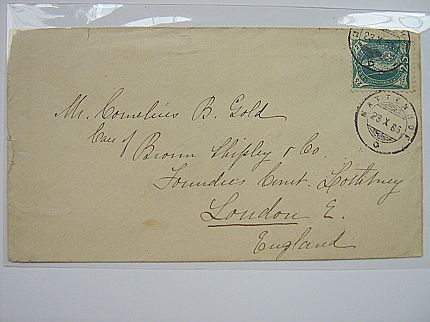 Mr. Cornelius B. Gold
Care of
Brown Shipley & Co.
Founders Court. Lothbury
London E.
England
25
MATTENHOF
23 X 85